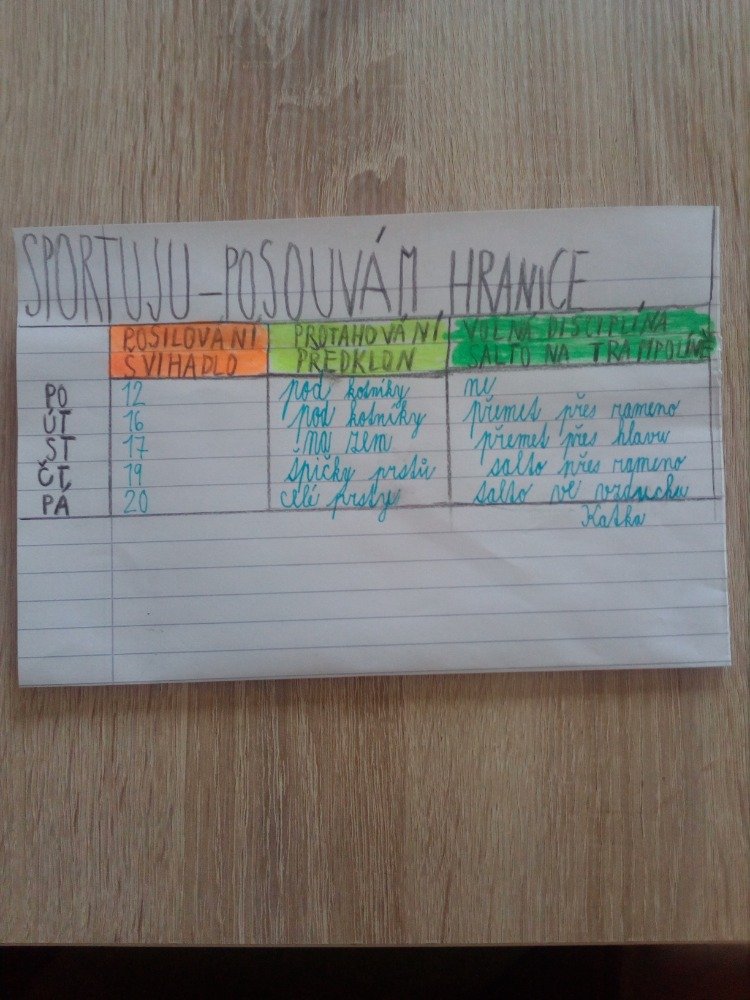 SPORTUJU – POSOUVÁM HRANICE
POSILOVÁNÍ PROTAHOVÁNÍ VOLNÁ DISCIPLÍNA
ŠVIHADLO PŘEDKLON SALTO NA TRAMPOLÍNĚ
PO 12 pod kotníky ne
ÚT 16 pod kotníky přemet přes rameno
ST 17 na zem přemet přes hlavu
ČT 19 špičky prstů salto přes rameno
PÁ 20 celé prsty salto ve vzduchu
Katka